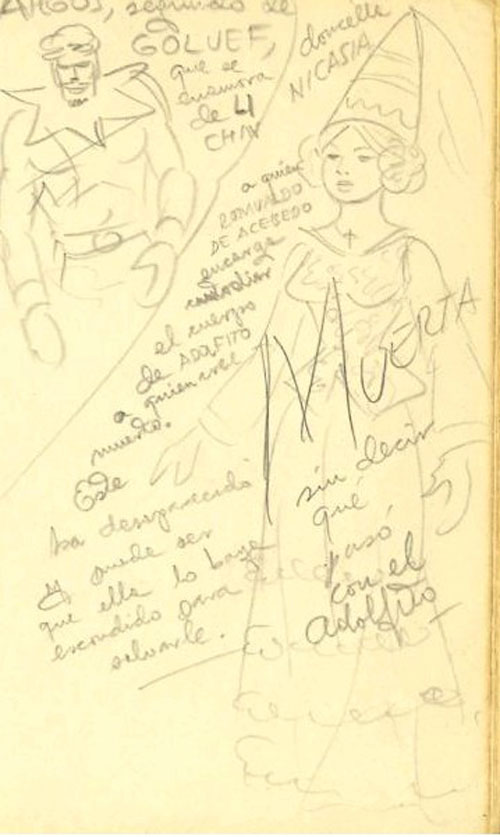 ARGOS, segundo de
GOLUEF,
que se
enamora
de LI
CHIN
doncella
NICASIA
a quien
ROMUALDO
DE ACEBEDO
encarga
custodiar
el cuerpo
de ADOLFITO
a quien cree
muerto.
Este
ha desaparecido
y puede ser
que ella lo haya
escondido para
salvarle.
MUERTA
sin decir
qué
pasó
con el
adolfito